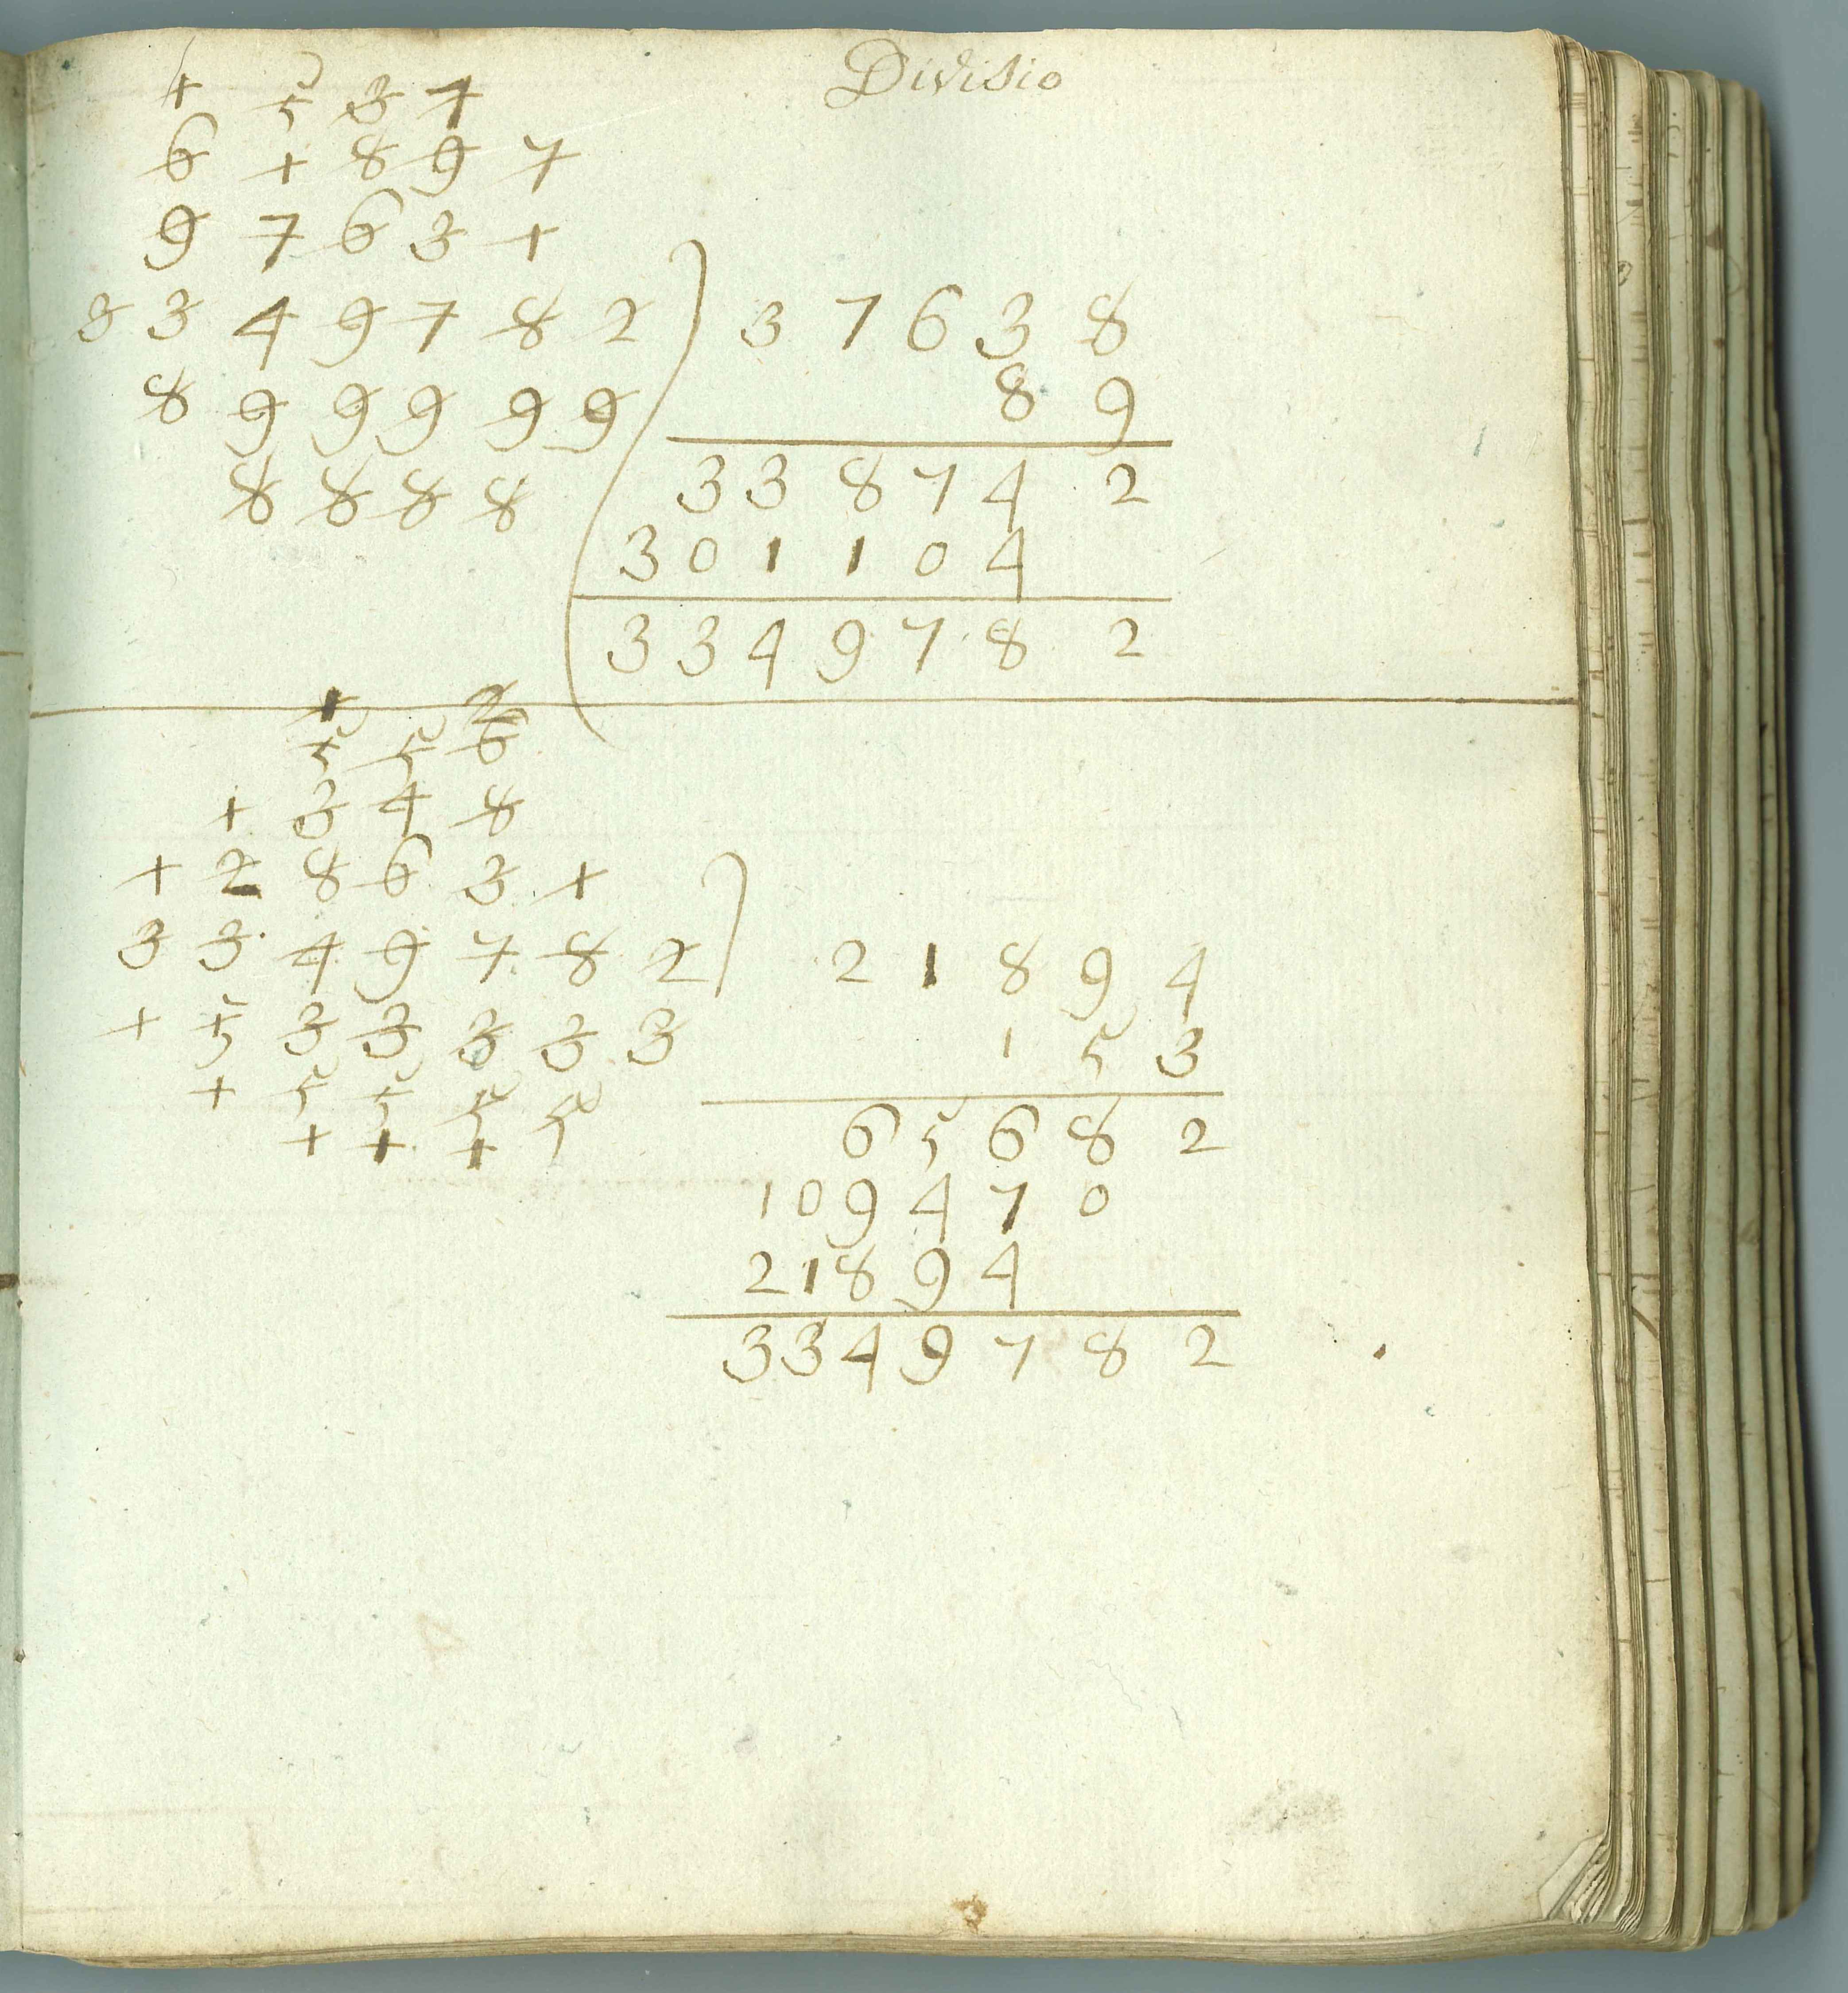 Divisio
1 5 3 1
6 1 8 9 7
9 7 6 3 1
3 3 4 9 7 8 2 ) 3 7 6 3 8
8 9 9 9 9 9 8 9
8 8 8 8 ( 3 3 8 7 4 2
3 0 1 1 0 4
3 3 4 9 7 8 2
1 2
5 5 6
1 3 4 8
1 2 8 6 3 1
3 3 4 9 7 8 2 ) 2 1 8 9 4
1 5 3 3 3 3 3 1 5 3
1 5 5 5 5 6 5 6 8 2
1 1 1 1 0 9 4 7 0
2 1 8 9 4
3 3 4 9 7 8 2